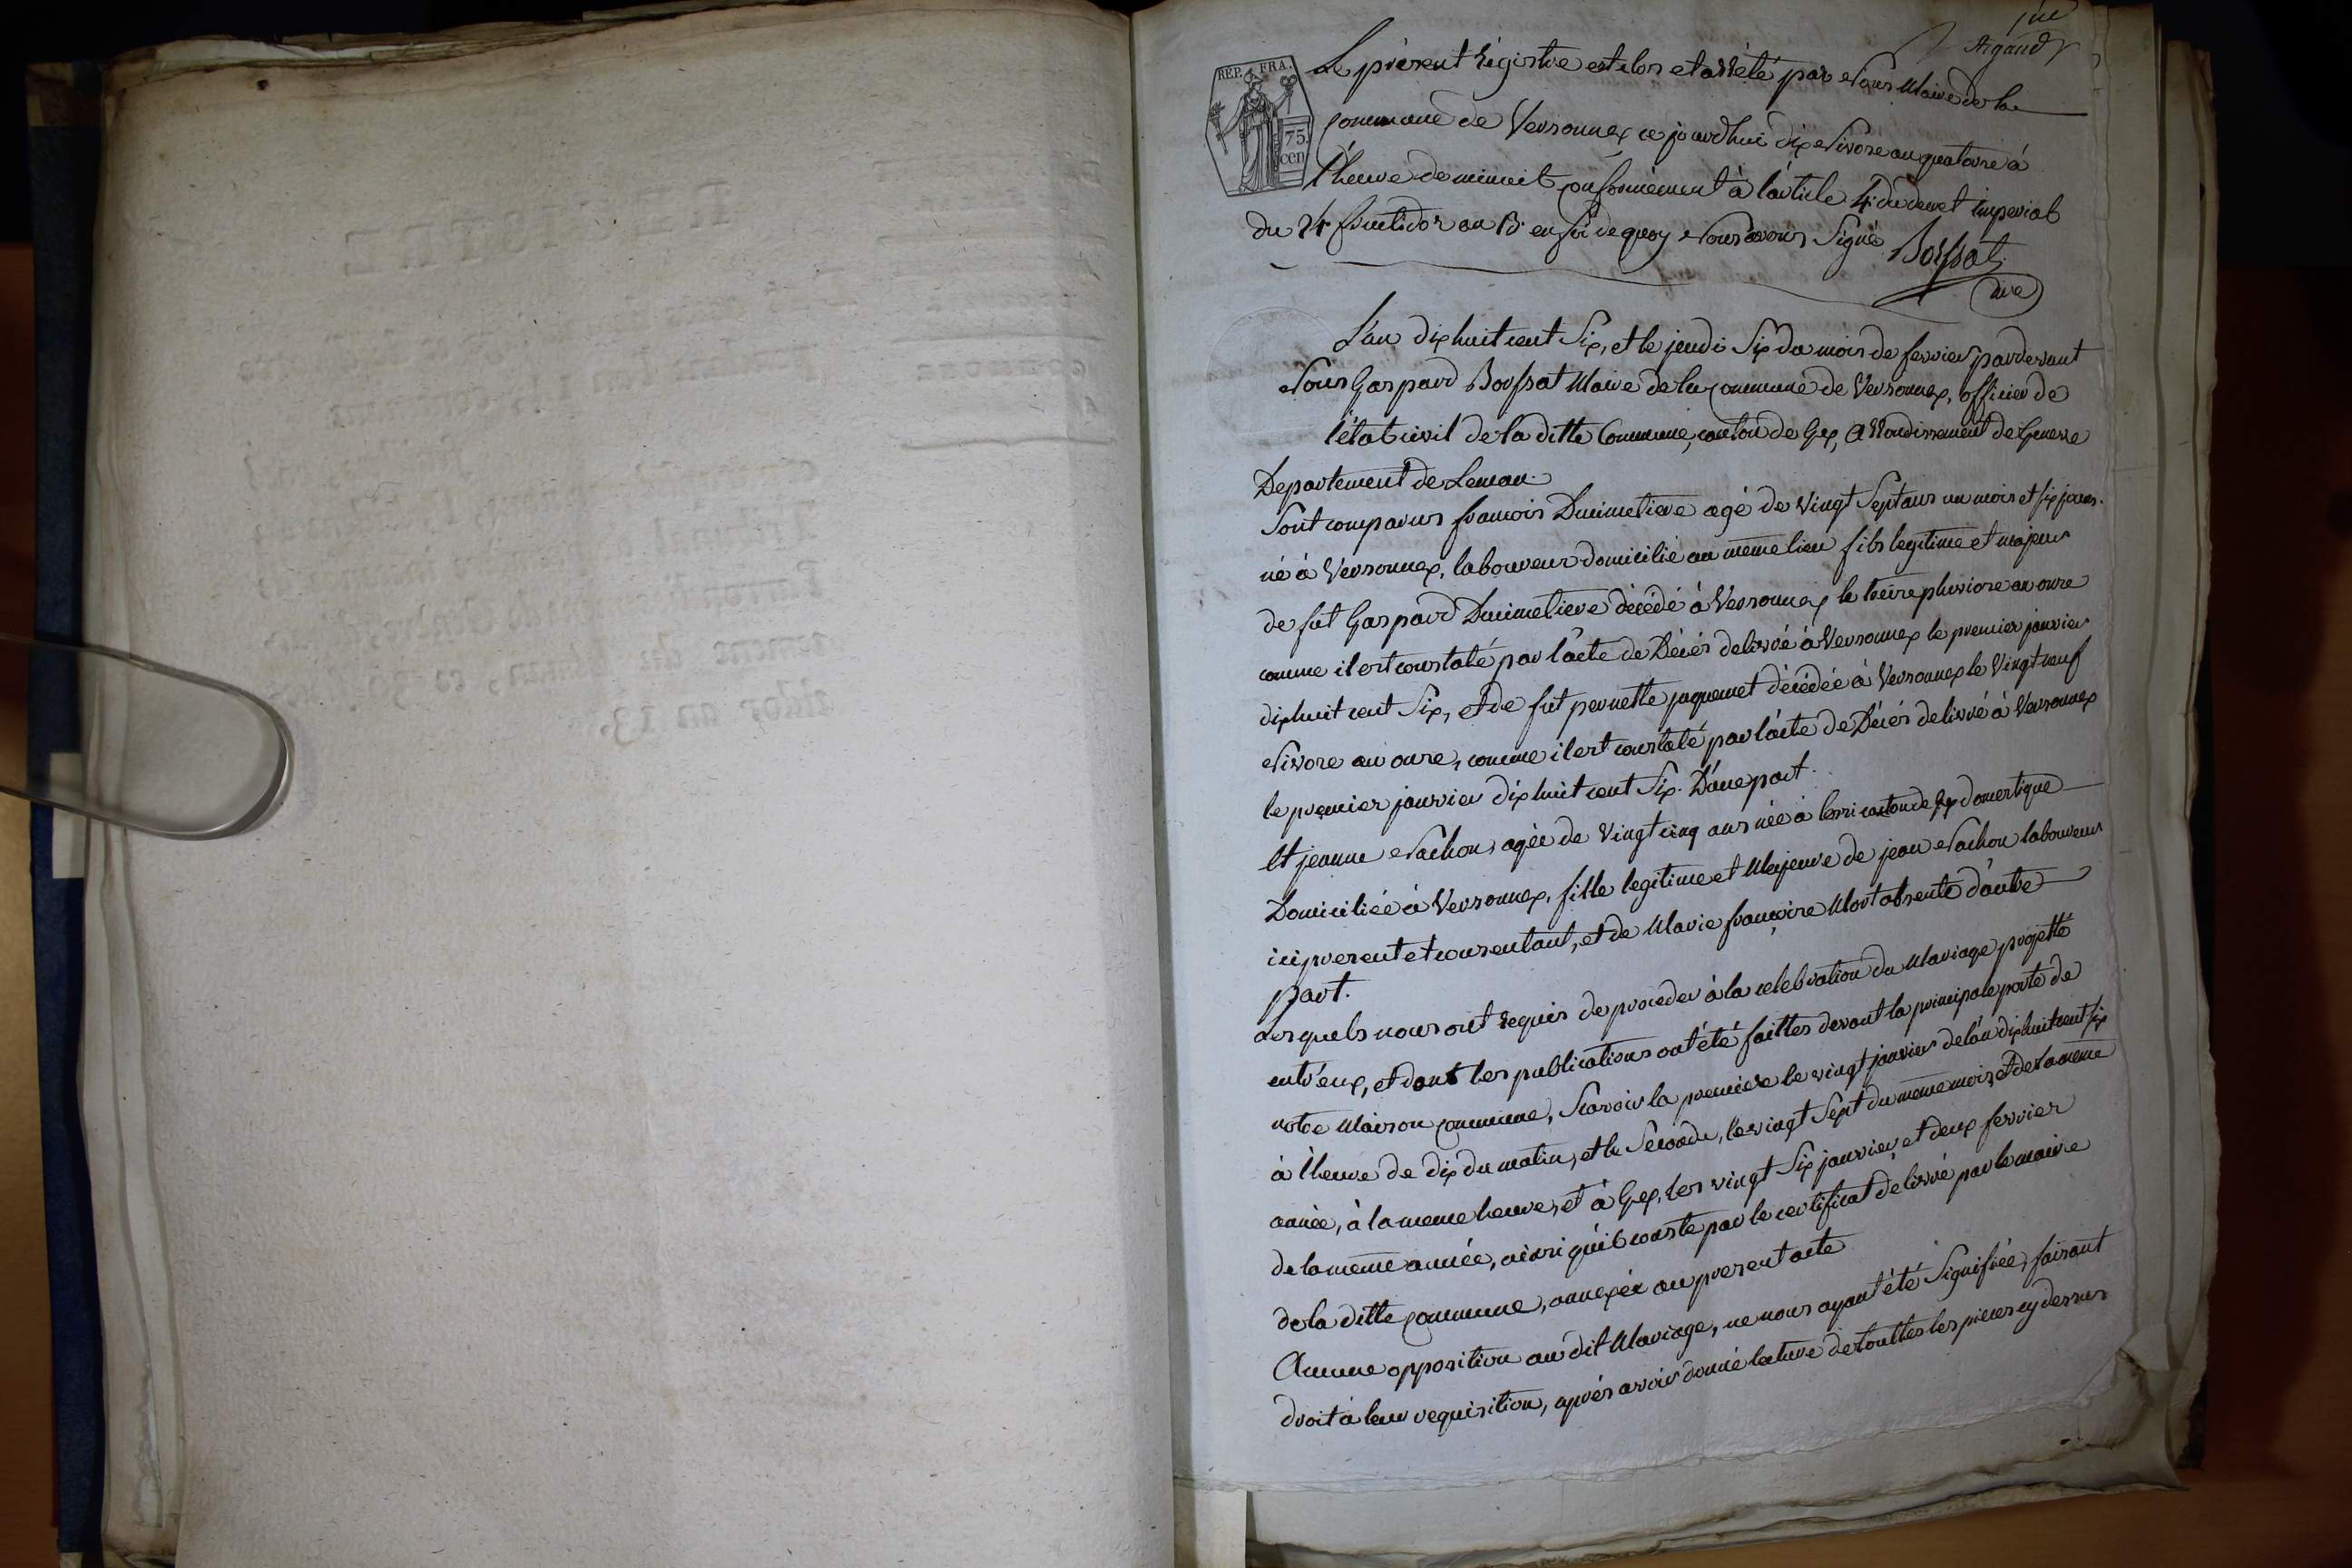 1re
Rigaud
REP. FRA.
75
cen
Le présent régistre est clos et arrêté par Nous Maire de la
Commune de Versonnex ce jourdhui dix Nivose an quatorze à
l'heure de minuit conformément à l'article 4. du decret imperial
du 24 fructidor an 13. en foi de quoy Nous avons signé Bossat
L'an dix huit cent Six, et le jeudi Six du mois de fevrier pardevant
Nous Gaspard Bossat Maire de la Commune de Versonnex, officier de
l'état civil de la ditte Commune, canton de Gex, Arrondissement de Geneve
Departement de Leman.
Sont comparus francois Ducimetiere agé de vingt Sept ans un mois et six jours.
né à Versonnex, laboureur domicilié au même lieu fils legitime et majeur
de fut Gaspard Ducimetiere décédé à Versonnex le treize pluviose an onze
comme il est constaté par l'acte de Décés delivré à Versonnex le premier janvier
dix huit cent Six, et de fut pernette jaquemet décédée à Versonnex le Vingt neuf
Nivose an onze, comme il est constaté par l'acte de Décés delivré à Versonnex
le premier janvier dix huit cent Six. D'une part.
Et jeanne Nachon, agée de Vingt cinq ans née à canton de Gex domestique
Domiciliée à Versonnex, fille legitime et Majeure de jean Nachon laboureur
ici present et consentant, et de Marie françoise Mort absente d'autre
part.
Lesquels nous ont requis de proceder à la celebration du Mariage projetté
entr'eux, et dont les publications ont été faittes devant la principale porte de
notre Maison commune, Scavoir la premiere le vingt janvier de l'an dix huit cent six
à l'heure de dix du matin, et la Seconde, le vingt Sept du meme mois, et de la meme
année, à la meme heure, et à Gex, les vingt Six janvier, et deux fevrier
de la meme année, ainsi qu'il conste par le certificat delivré par le maire
de la ditte Commune, annexée au present acte
Aucune opposition au dit Mariage, ne nous ayant été Signifiée, faisant
droit à leur requisition, aprés avoir donné lecture de touttes les pieces cy dessus